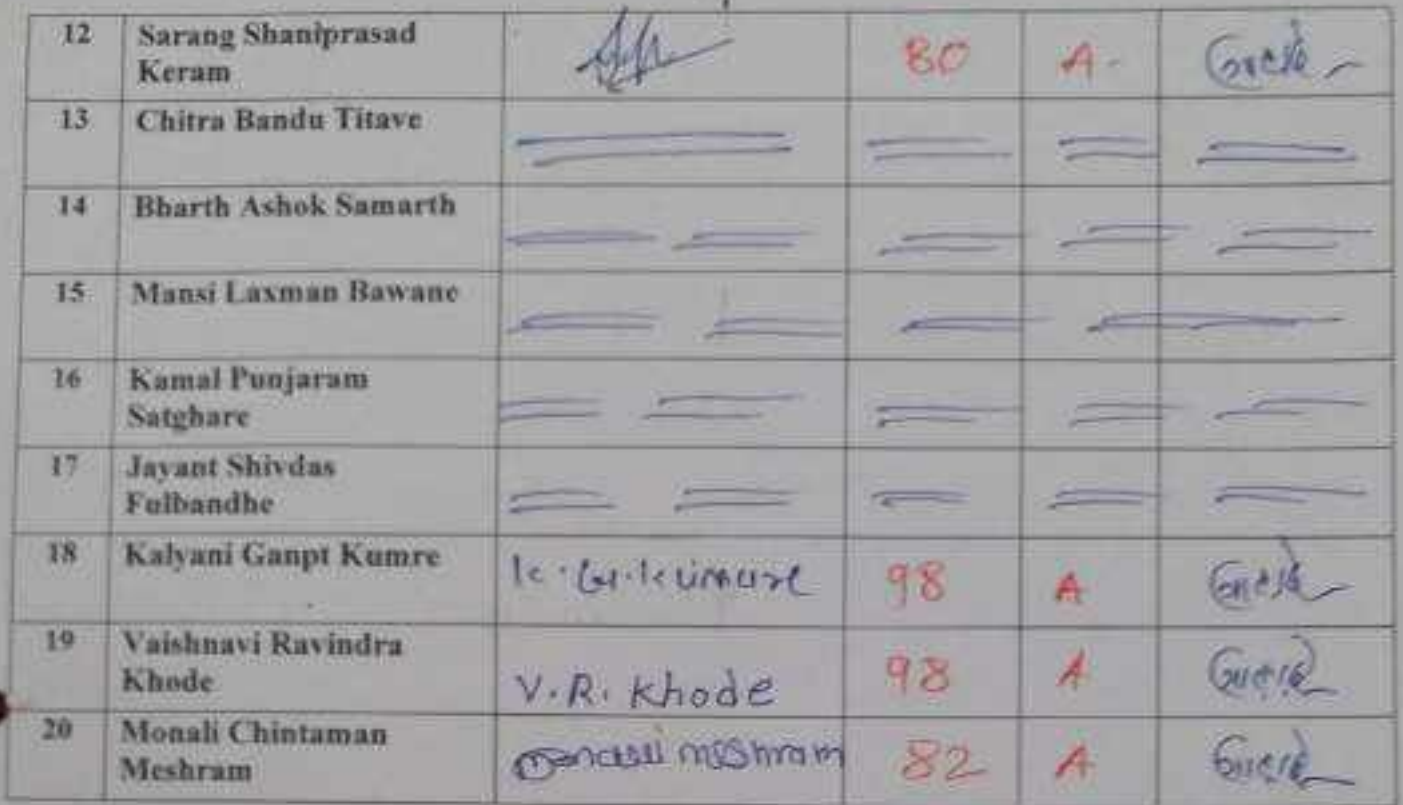 12 Sarang Shaniprasad Keram 80 A
13 Chitra Bandu Titave
14 Bharth Ashok Samarth
15 Mansi Laxman Bawane
16 Kamal Punjaram Satghare
17 Jayant Shivdas Fulbandhe
18 Kalyani Ganpt Kumre K.G.Kumure 98 A
19 Vaishnavi Ravindra Khode V.R. Khode 98 A
20 Monali Chintaman Meshram monali meshram 82 A